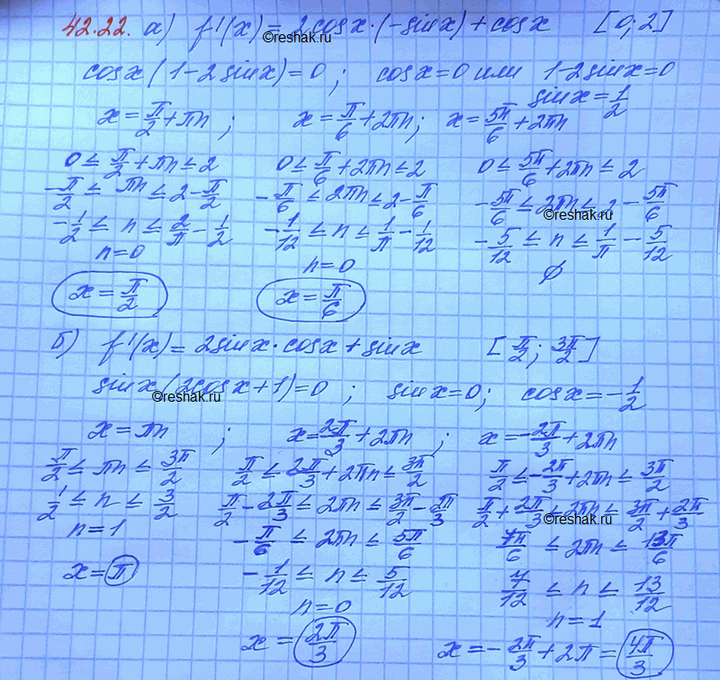 42.22. а) f'(x) = 2cosx·(-sinx) + cosx [0; 2]
reshak.ru
cosx(1-2sinx)=0; cosx=0 или 1-2sinx=0
sinx=1/2
x=π/2+πn; x=π/6+2πn; x=5π/6+2πn
0≤π/2+πn≤2 0≤π/6+2πn≤2 0≤5π/6+2πn≤2
-π/2≤πn≤2-π/2 -π/6≤2πn≤2-π/6 -5π/6≤2πn≤2-5π/6
©reshak.ru
-1/2≤n≤2/π-1/2 -1/12≤n≤1/π-1/12 -5/12≤n≤1/π-5/12
n=0 n=0 ∅
x=π/2 x=π/6
б) f'(x)=2sinx·cosx+sinx [π/2; 3π/2]
sinx(2cosx+1)=0; sinx=0; cosx=-1/2
©reshak.ru
x=πn; x=2π/3+2πn; x=-2π/3+2πn
π/2≤πn≤3π/2 π/2≤2π/3+2πn≤3π/2 π/2≤-2π/3+2πn≤3π/2
1/2≤n≤3/2 π/2-2π/3≤2πn≤3π/2-2π/3 π/2+2π/3≤2πn≤3π/2+2π/3
©reshak.ru
n=1 -π/6≤2πn≤5π/6 7π/6≤2πn≤13π/6
x=π -1/12≤n≤5/12 7/12≤n≤13/12
n=0 n=1
x=2π/3 x=-2π/3+2π=4π/3